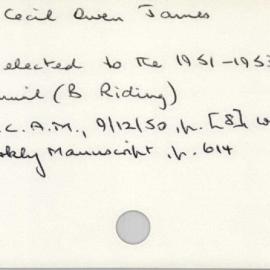 Cecil Owen James
elected to the 1951-1953
(B Riding)
.C.A.M., 9/12/50, p. [8], w
Manuscript, p. 614